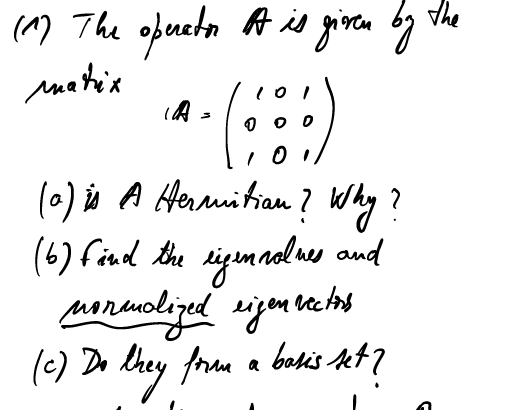 (1) The operator A is given by the
matrix
A = ( 1 0 1
0 0 0
1 0 1 )
(a) is A Hermitian? Why?
(b) find the eigenvalues and
normalized eigenvectors
(c) Do they form a basis set?